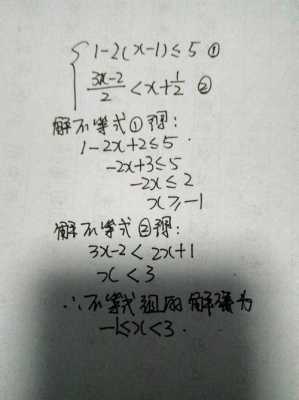 { 1-2(x-1)≤5 ①
(3x-2)/2 < x+1/2 ②
解不等式①得:
1-2x+2≤5.
-2x+3≤5
-2x≤2
x≥-1
解不等式②得:
3x-2<2x+1
x<3
∴不等式组的解集为
-1≤x<3.